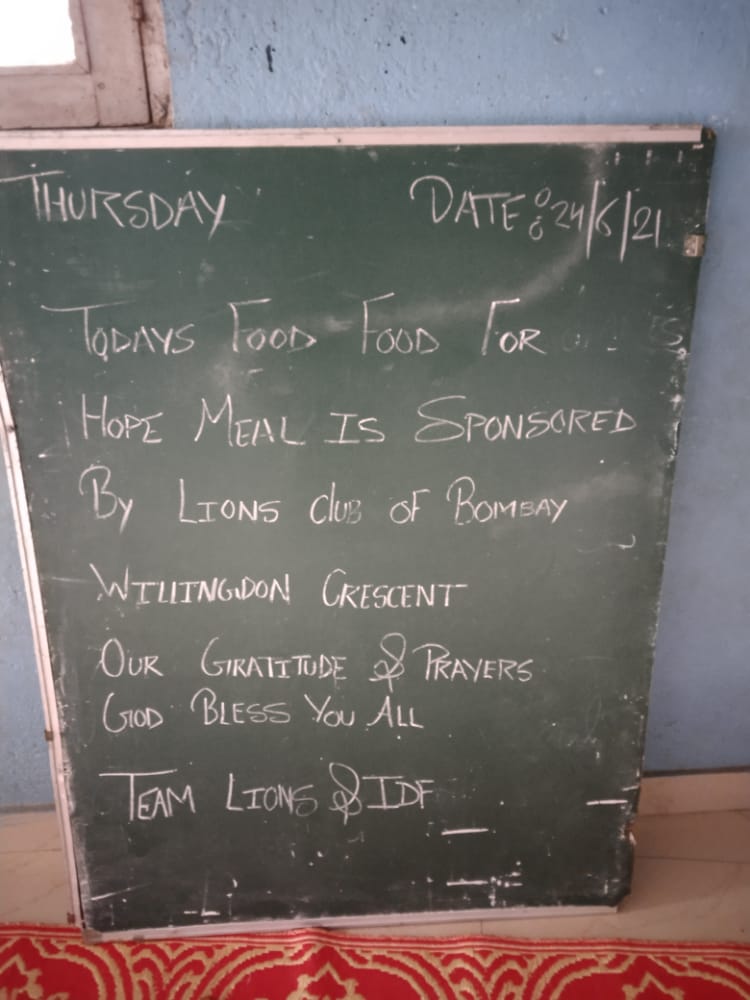 THURSDAY DATE: 24/6/21
TODAYS FOOD FOOD FOR
HOPE MEAL IS SPONSORED
BY LIONS CLUB OF BOMBAY
WILLINGDON CRESCENT
OUR GRATITUDE & PRAYERS
GOD BLESS YOU ALL
TEAM LIONS & IDF